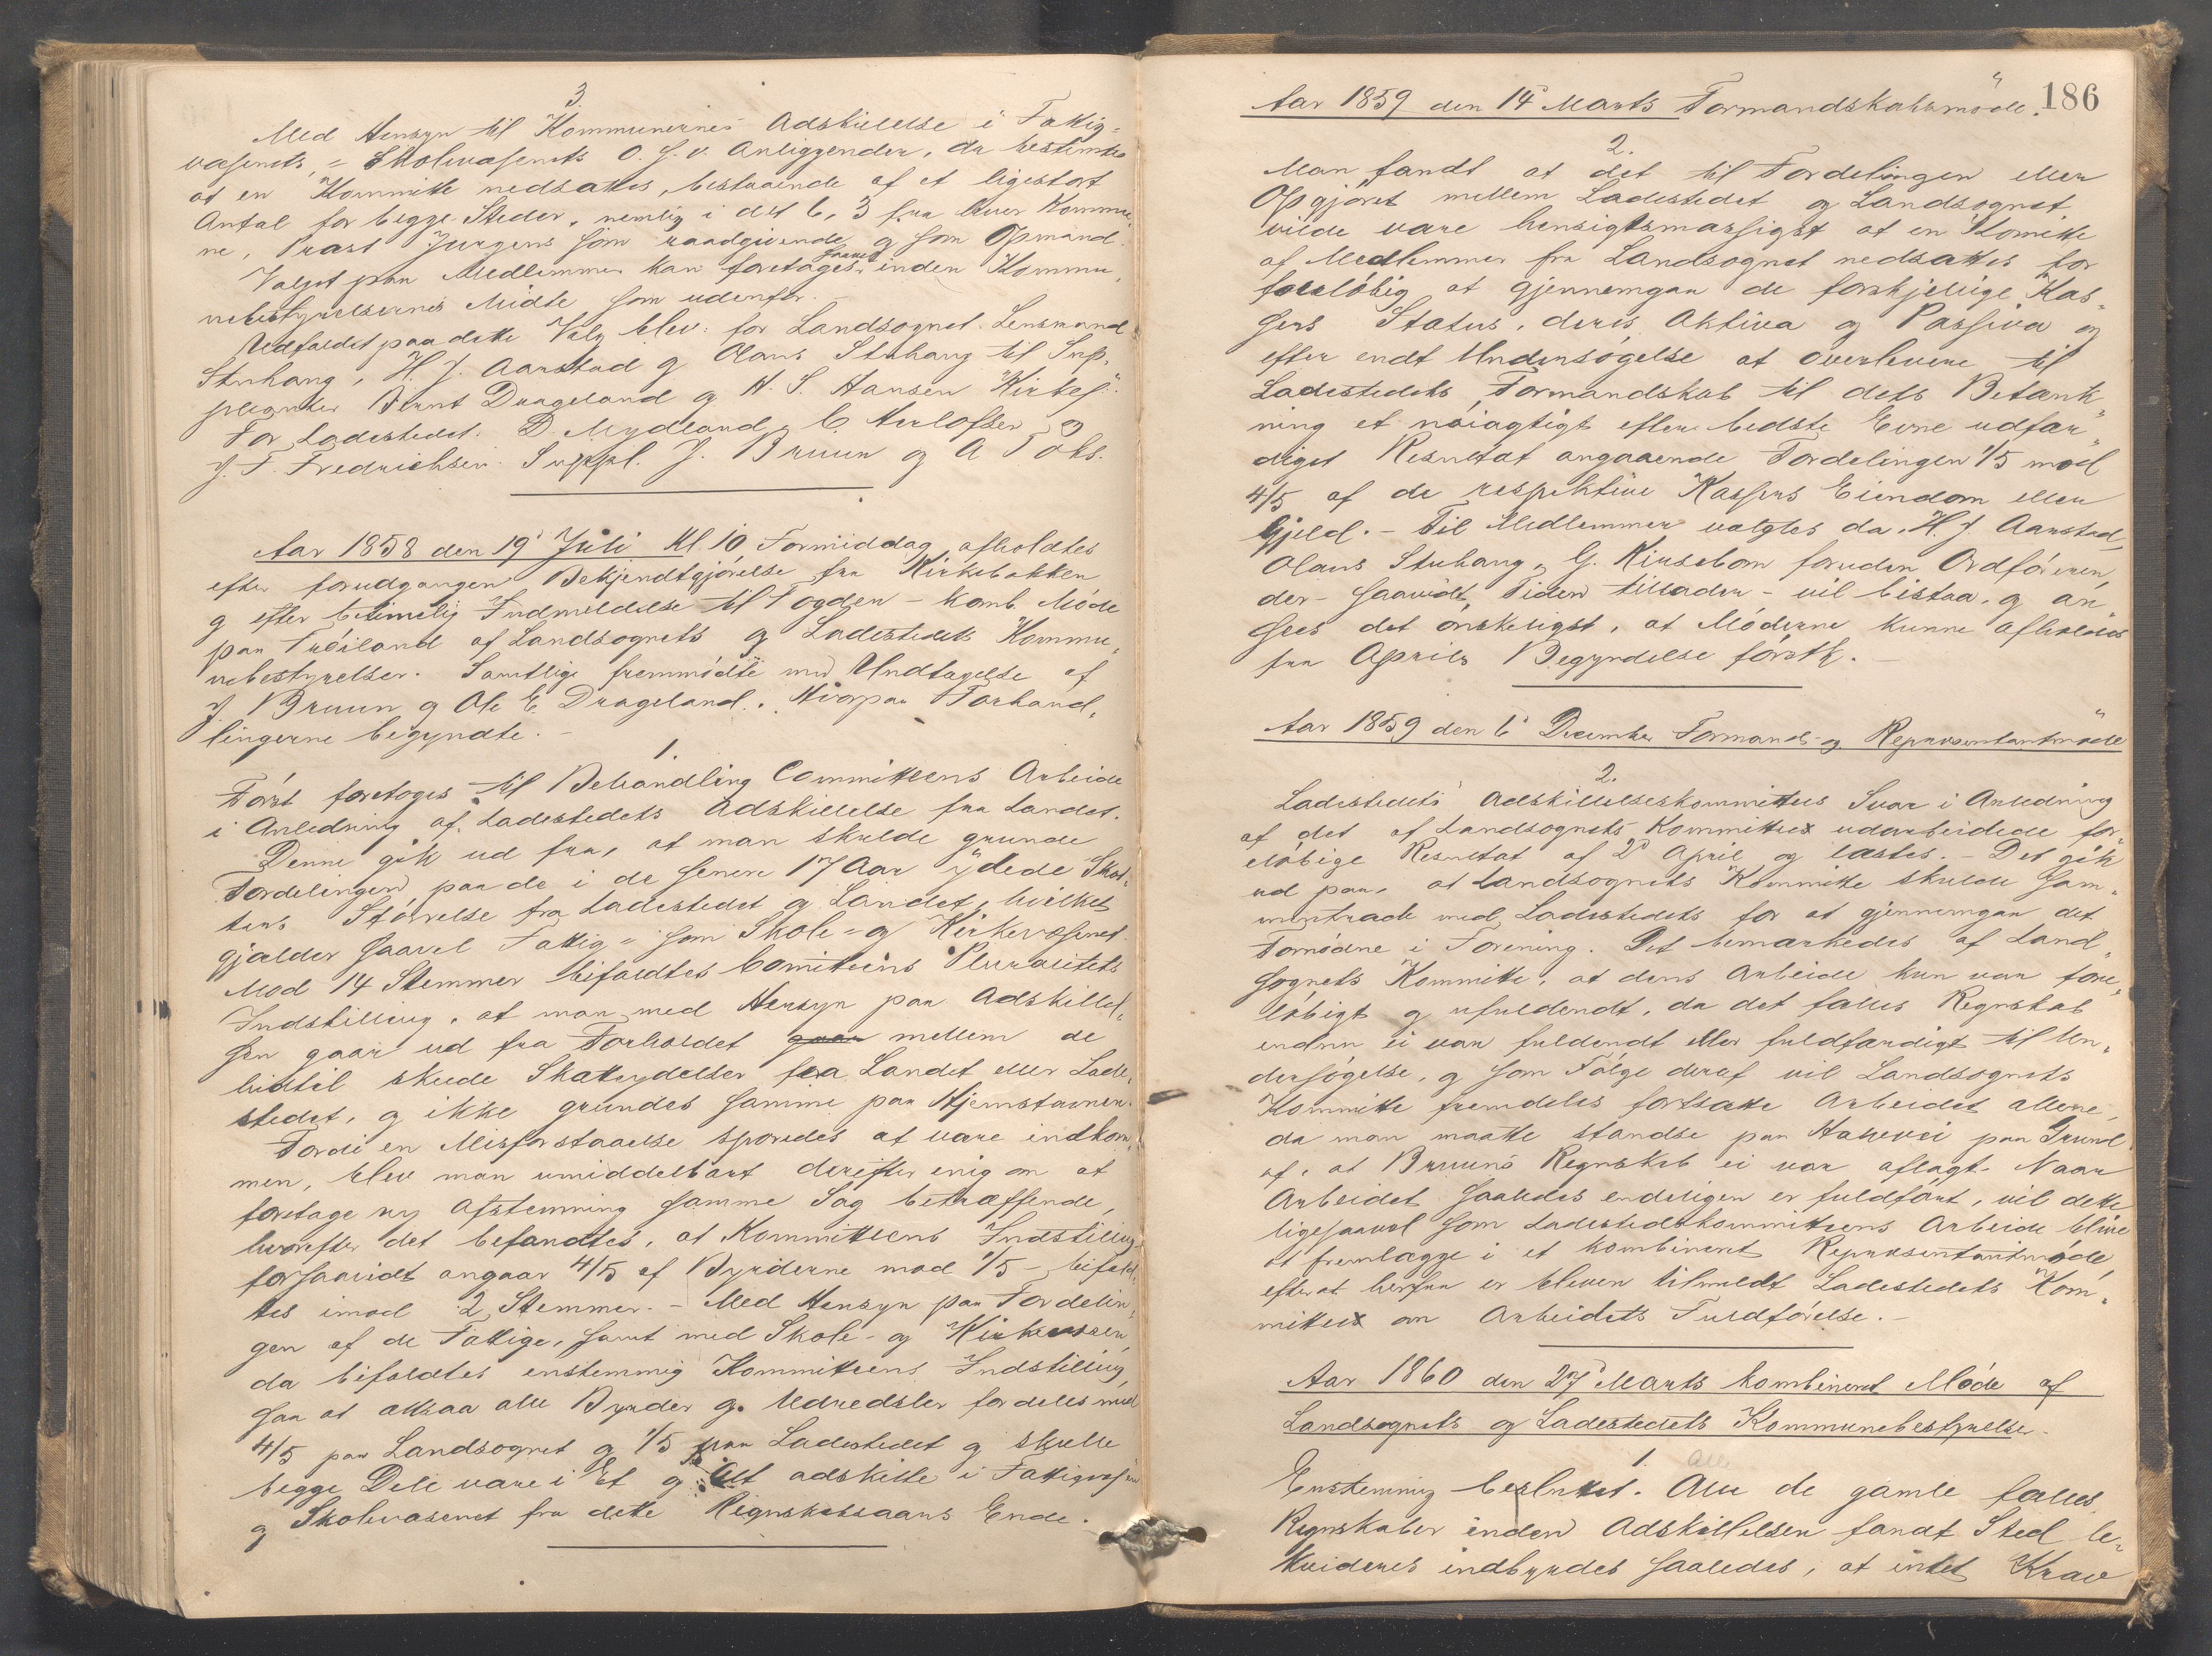 3.
Med Hensyn til Kommunernes Adskillelse i Fattig-
væsenets, = Skolevæsenets o. s. v. Anliggender, da bestemtes
at en Kommitte nedsattes, bestaaende af et ligestort
Antal for begge Steder, nemlig i det 6, 3 fra hver Kommu-
ne, Præst Jürgens som raadgivende og som Opmand.
Valget paa Medlemmer kan foretages saavel inden Kommu-
nebestyrelsernes Midte som udenfor. -
Udfaldet paa dette Valg blev: for Landsognet Lensmand
Stuhaug, H. J. Aarstad og Olaus Stuhaug til Sup-
pleanter Bernt Drageland og H. S. Hansen Kirkes".
For Ladestedet. D. Mydland, C. Herlofsen og
J. F. Fredrichsen. Suppl. J. Bruun og A Töks.
Aar 1858 den 19' Juli Kl. 10 Formiddag afholdtes
efter forudgangen Bekjendtgjørelse fra Kirkebakken
og efter betimelig Indmeldelse til Fogden - komb. Møde
paa Frøiland af Landsognets og Ladestedets Kommu-
nebestyrelser. Samtlige fremmødte med Undtagelse af
J. Bruun og Ole E. Drageland. Hvorpaa Forhand-
lingerne begyndte. -
1.
Først foretoges til Behandling Committeens Arbeide
i Anledning af Ladestedets Adskillelse fra Landet.
Denne gik ud fra, at man skulde grunde
Fordelingen paa de i de senere 17 Aar ydede Skat-
ters Størrelse fra Ladestedet og Landet, hvilket
gjælder saavel Fattig = som Skole = og Kirkevæsenet.
Mod 14 Stemmer bifaldtes Comiteens Pluralitets
Indstilling, at man med Hensyn paa Adskillel-
sen gaar ud fra Forholdet gaar mellem de
hidtil skede Skatteydelser fra Landet eller Lade-
stedet, og ikke grundes samme paa Hjemstavnen.
Fordi en Misforstaaelse sporedes at være indkom-
men, blev man umiddelbart derefter enig om at
foretage ny Afstemning samme Sag betræffende,
hvorefter det befandtes, at Kommitteens Indstilling
forsaavidt angaar 4/5 af Byrderne mod 1/5 - bifald-
tes imod 2 Stemmer. - Med Hensyn paa Fordelin-
gen af de Fattige, samt med Skole- og Kirkevæsen
da bifaldtes enstemmig Kommitteens Indstilling,
saa at altsaa alle Byrder og Udredsler fordeles med
4/5 paa Landsognet og 1/5 paa Ladestedet og skulle
begge Dele være i Et og Alt adskilte i Fattigvæsen
og Skolevæsenet fra dette Regnskabsaars Ende.
186
Aar 1859 den 14' Marts Formandskabsmøde.
2.
Man fandt at det til Fordelingen eller
Opgjøret mellem Ladestedet og Landsognet
vilde være hensigtsmæssigst at en Komitte
af Medlemmer fra Landsognet nedsattes for
foreløbig at gjennemgaa de forskjellige Kas-
sers Status, deris Aktiva og Passiva og
efter endt Undersøgelse at overlevere til
Ladestedets Formandskab til dets Betænk-
ning et nøiagtigt efter bedste Evne udfær-
diget Resultat angaaende Fordelingen 1/5 mod
4/5 af de respektive Kassers Eiendom eller
Gjeld. - Til Medlemmer valgtes da H. J. Aarstad,
Olaus Stuhaug, G. Kinsebom foruden Ordføreren,
der - saavidt Tiden tillader - vil bistaa, og an-
sees det ønskeligst, at Møderne kunne afholdes
fra Aprils Begyndelse førstk. -
Aar 1859 den 6' December Formands- og Repræsentantmøde
2.
Ladestedets Adskillelseskommittees Svar i Anledning
af det af Landsognets Kommittee udarbeidede for-
eløbige Resultat af 2' April og læstes. - Det gik
ud paa, at Landsognets Kommitte skulde sam-
mentræde med Ladestedets for at gjennemgaa det
Fornødne i Forening. Det bemærkedes af Land-
sognets Kommitte, at dens Arbeide kun var fore-
løbigt og ufuldendt, da det fælles Regnskab
endnu ei var fuldendt eller fuldfærdigt til Un-
dersøgelse, og som Følge deraf vil Landsognets
Kommitte fremdeles fortsætte Arbeidet allene,
da man maatte standse paa Halvvei paa Grund
af, at Bruuns Regnskab ei var aflagt. Naar
Arbeidet saaledes endeligen er fuldført, vil dette
ligesaavel som Ladestedskommitteens Arbeide blive
at fremlægge i et kombineret Repræsentantmøde,
efterat herfra er bleven tilmeldt Ladestedets Kom-
mittee om Arbeidets Fuldførelse. -
Aar 1860 den 27' Marts kombineret Møde af
Landsognets og Ladestedets Kommunebestyrelse.
1.
Alle
Enstemmig besluttet. Alle de gamle fælles
Regnskaber inden Adskillelsen fandt Sted le-
kvideres indbyrdes saaledes, at intet Krav